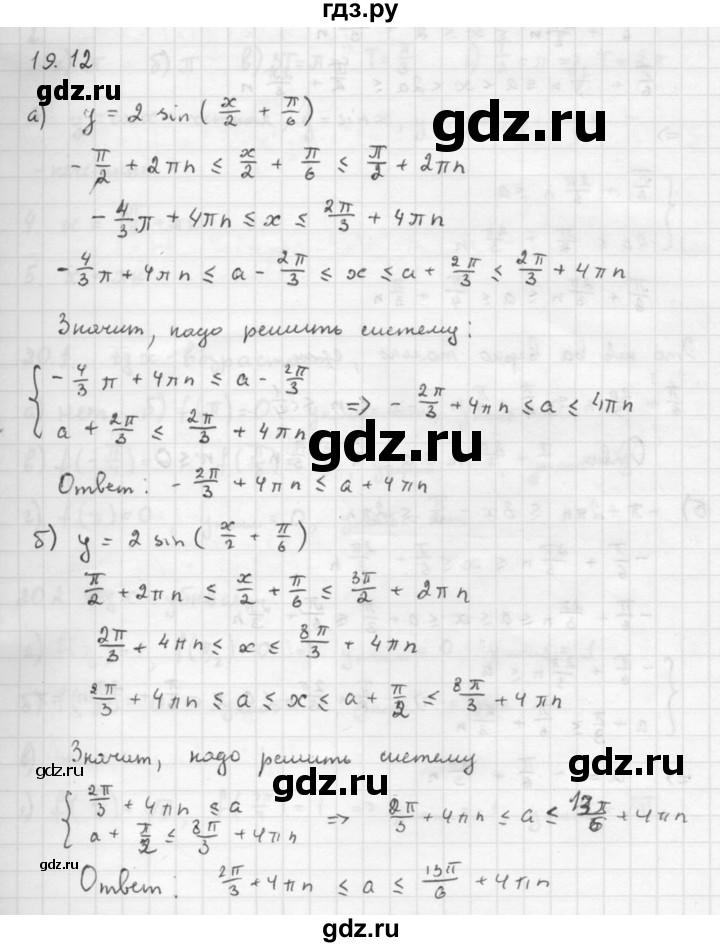 гдз.ру
19.12
gdz.ru
а) y = 2 sin(x/2 + π/6)
gdz.ru
-π/2 + 2πn ≤ x/2 + π/6 ≤ π/2 + 2πn
-4/3 π + 4πn ≤ x ≤ 2π/3 + 4πn
-4/3 π + 4πn ≤ a - 2π/3 ≤ x ≤ a + 2π/3 ≤ 2π/3 + 4πn
Значит, надо решить систему:
{ -4/3 π + 4πn ≤ a - 2π/3
a + 2π/3 ≤ 2π/3 + 4πn
=> -2π/3 + 4πn ≤ a ≤ 4πn
gdz.ru
gdz.ru
Ответ: -2π/3 + 4πn ≤ a + 4πn
б) y = 2 sin(x/2 + π/6)
π/2 + 2πn ≤ x/2 + π/6 ≤ 3π/2 + 2πn
2π/3 + 4πn ≤ x ≤ 8π/3 + 4πn
2π/3 + 4πn ≤ a ≤ x ≤ a + π/2 ≤ 8π/3 + 4πn
Значит, надо решить систему
gdz.ru
gdz.ru
gdz.ru
{ 2π/3 + 4πn ≤ a
a + π/2 ≤ 8π/3 + 4πn
=> 2π/3 + 4πn ≤ a ≤ 13π/6 + 4πn
Ответ: 2π/3 + 4πn ≤ a ≤ 13π/6 + 4πn
gdz.ru
gdz.ru